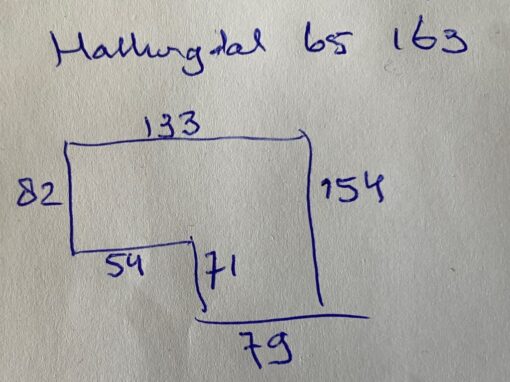 Hallingdal 65 163
133
82 154
54 71
79